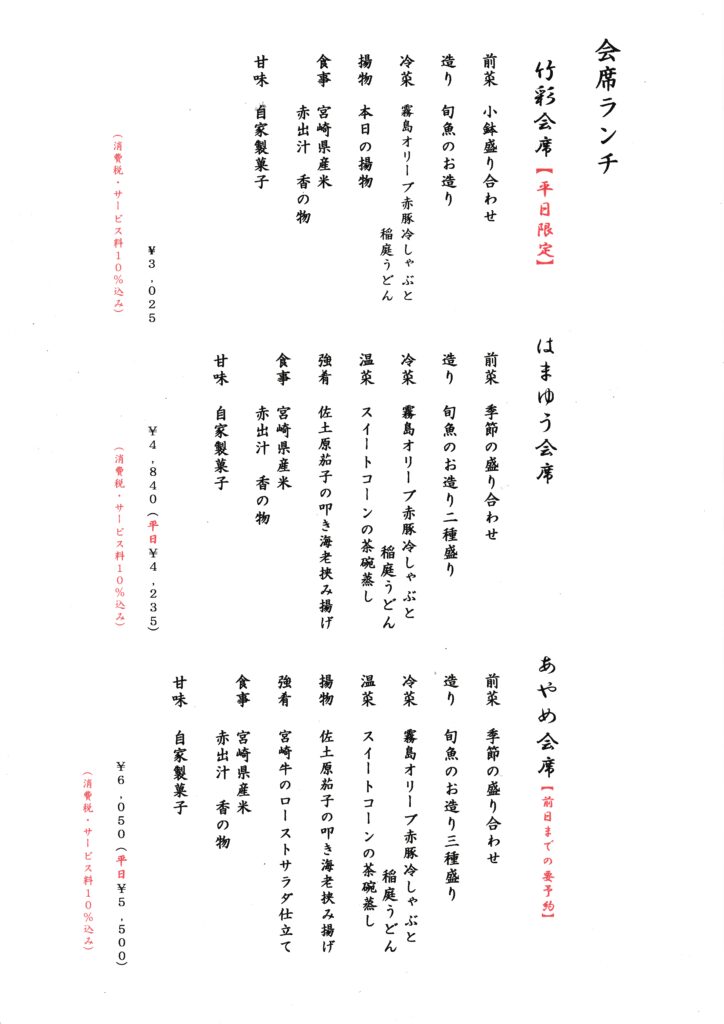 会席ランチ
竹彩会席【平日限定】
前菜 小鉢盛り合わせ
造り 旬魚のお造り
冷菜 霧島オリーブ赤豚冷しゃぶと
稲庭うどん
揚物 本日の揚物
食事 宮崎県産米
赤出汁 香の物
甘味 自家製菓子
￥3,025
(消費税・サービス料10%込み)
はまゆう会席
前菜 季節の盛り合わせ
造り 旬魚のお造り二種盛り
冷菜 霧島オリーブ赤豚冷しゃぶと
稲庭うどん
温菜 スイートコーンの茶碗蒸し
強肴 佐土原茄子の叩き海老挟み揚げ
食事 宮崎県産米
赤出汁 香の物
甘味 自家製菓子
￥4,840(平日￥4,235)
(消費税・サービス料10%込み)
あやめ会席【前日までの要予約】
前菜 季節の盛り合わせ
造り 旬魚のお造り三種盛り
冷菜 霧島オリーブ赤豚冷しゃぶと
稲庭うどん
温菜 スイートコーンの茶碗蒸し
揚物 佐土原茄子の叩き海老挟み揚げ
強肴 宮崎牛のローストサラダ仕立て
食事 宮崎県産米
赤出汁 香の物
甘味 自家製菓子
￥6,050(平日￥5,500)
(消費税・サービス料10%込み)